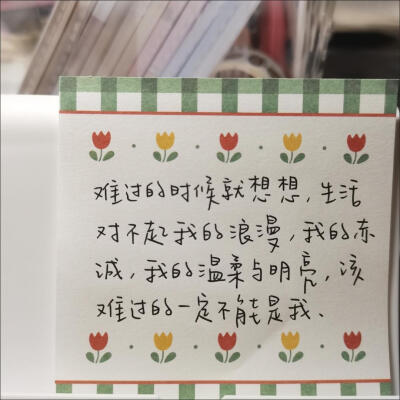 难过的时候就想想，生活
对不起我的浪漫，我的赤
诚，我的温柔与明亮，该
难过的一定不能是我、